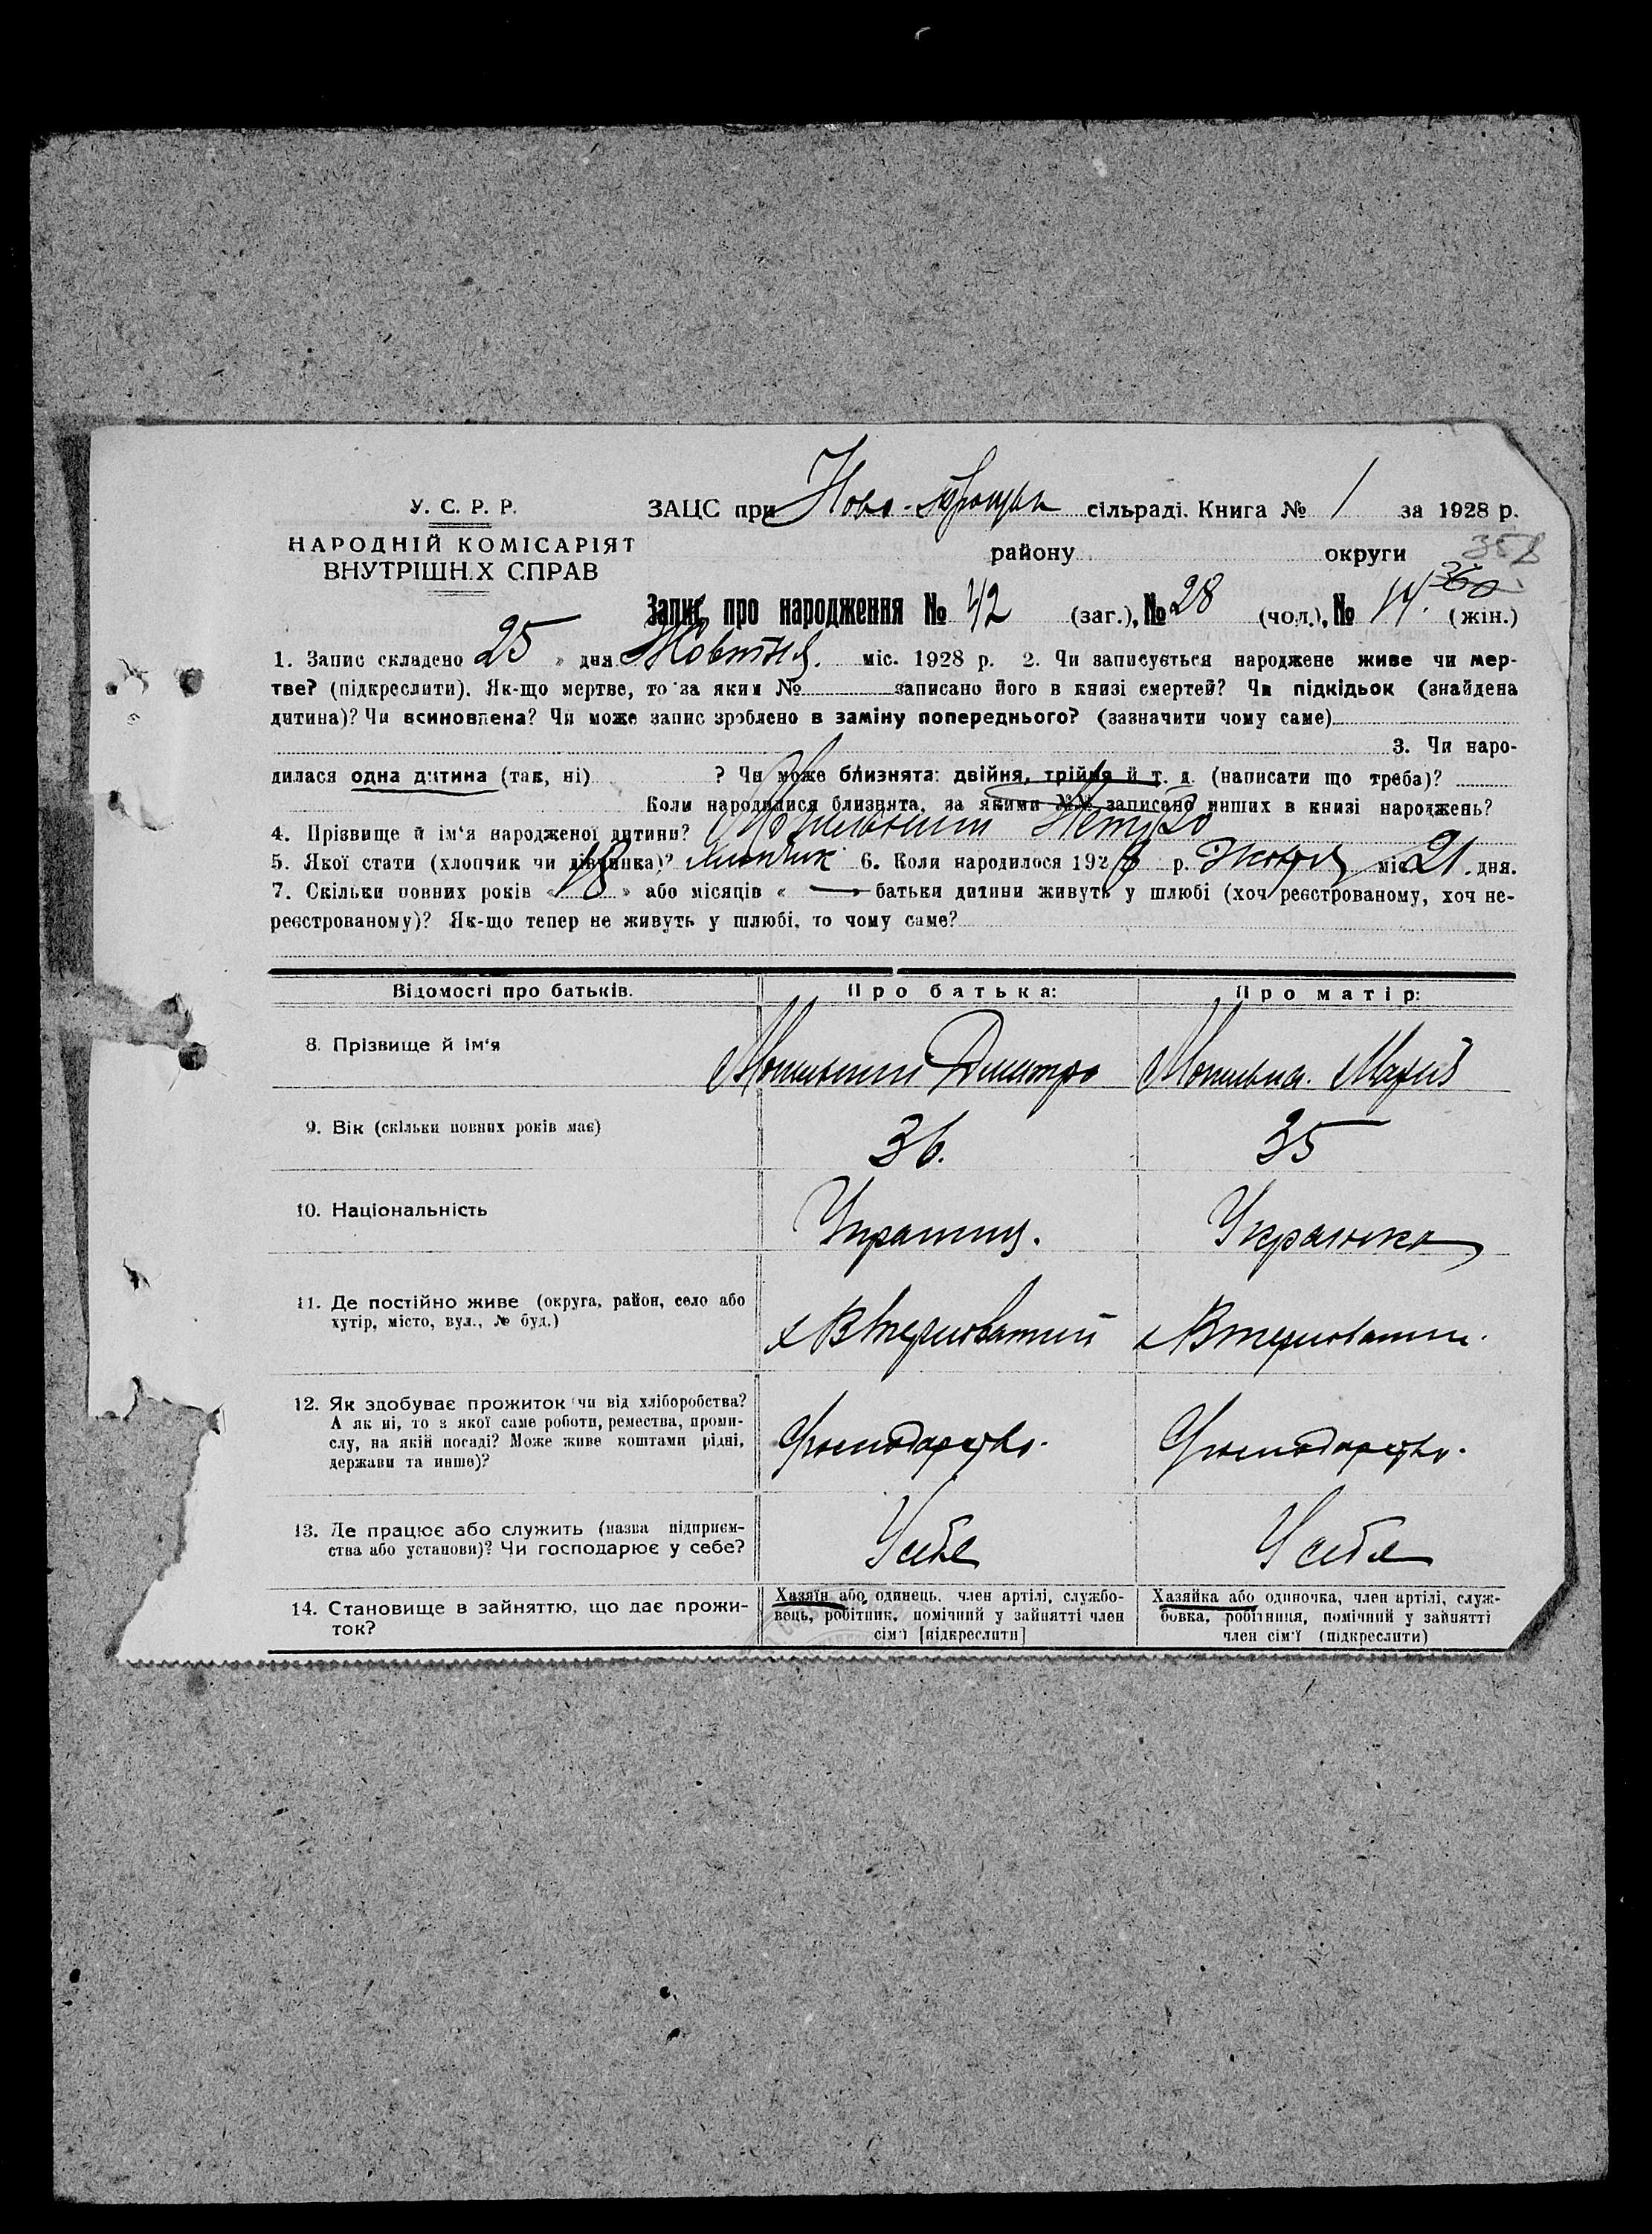 У. С. Р. Р.
НАРОДНІЙ КОМІСАРІЯТ
ВНУТРІШН.Х СПРАВ
ЗАЦС при Ново- сільраді. Книга № 1 за 1928 р.
району округи 358
360
Запис про народження № 42 (заг.), № 28 (чол.), № 14. (жін.)
1. Запис складено 25 » дня Жовтня. міс. 1928 р. 2. Чи записується народжене живе чи мер-
тве? (підкреслити). Як-що мертве, то за яким № записано його в книзі смертей? Чи підкідьок (знайдена
дитина)? Чи всиновлена? Чи може запис зроблено в заміну попереднього? (зазначити чому саме)
3. Чи наро-
дилася одна дитина (так, ні) ? Чи може близнята: двійня, трійня й т. д. (написати що треба)?
Коли народилися близнята, за якими №№ записано инших в книзі народжень?
4. Прізвище й ім‘я народженої дитини?
5. Якої стати (хлопчик чи дівчинка)? хлопчик 6. Коли народилося 1928 р. Жовтня міс 21. дня.
7. Скільки повних років « 18 » або місяців « — батьки дитини живуть у шлюбі (хоч реєстрованому, хоч не-
реєстрованому)? Як-що тепер не живуть у шлюбі, то чому саме?
Відомості про батьків. Про батька: Про матір:
8. Прізвище й ім‘я Дмитро
9. Вік (скільки повних років має) 36. 35
10. Національність Українець. Українка
11. Де постійно живе (округа, район, село або
хутір, місто, вул., № буд.)
12. Як здобуває прожиток чи від хліборобства?
А як ні, то з якої саме роботи, ремества, проми-
слу, на якій посаді? Може живе коштами рідні,
держави та инше)?
Господарство. Господарство.
13. Де працює або служить (назва підприєм-
ства або установи)? Чи господарює у себе?
У себе У себе
14. Становище в зайняттю, що дає прожи-
ток?
Хазяїн або одинець, член артілі, службо-
вець, робітник, помічний у зайнятті член
сім‘ї [підкреслити]
Хазяйка або одиночка, член артілі, служ-
бовка, робітниця, помічний у зайнятті
член сім‘ї (підкреслити)